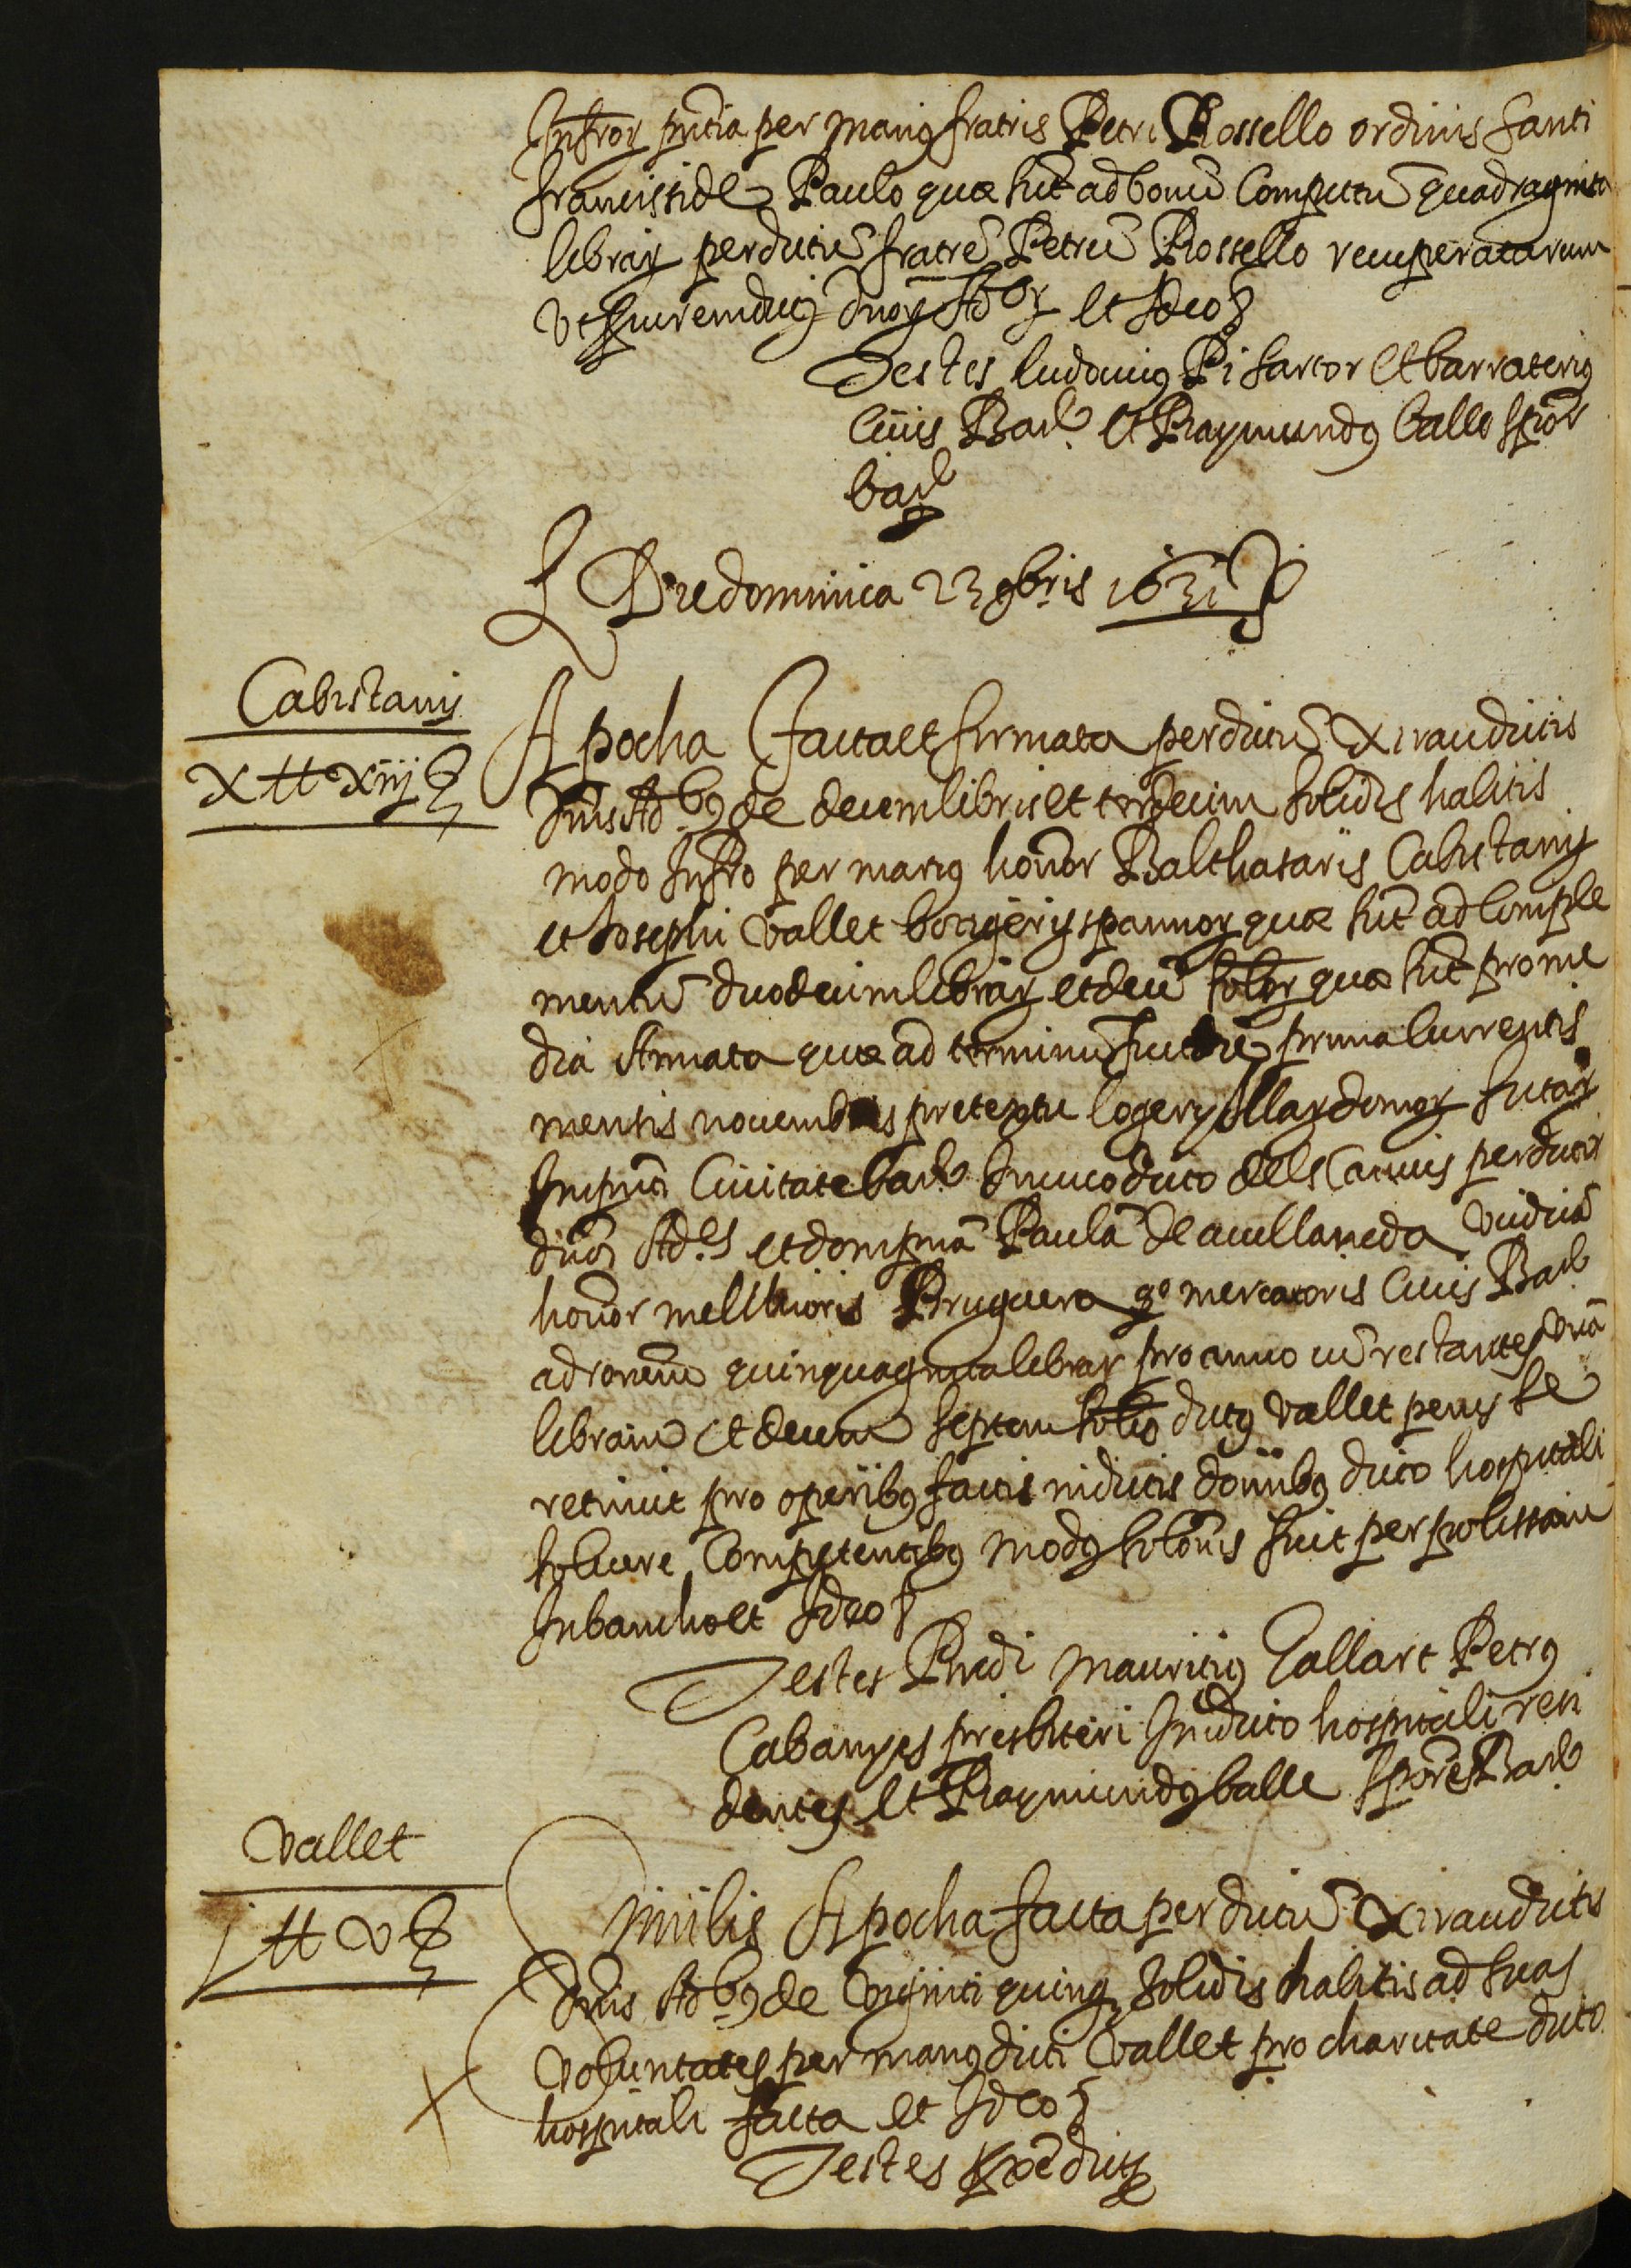 Infror pntia per manus fratris Petri Rossello ordinis santi
francissi de Paulo quæ sut ad bonu Computu quadraginta
librar per dictu fratre Petru Rossello recuperatarum
et Ideo
Testes ludovicus Pi sartor et barraterius
civis Barc. et Raymundus balle
barc
Die dominica 23 9bris 1631
Cabistany
X ll Xiij ß
Apocha facta et firmata per dictu Xirau dictis
dnis Adbus de decem libris et terdecim solidis habitis
modo infro per manus honor Balthasaris Cabistany
et Josephi Vallet botigerijs pannor quæ sut ad comple
mentu duodecim librar et decē solor quæ sut pro me
dia Annata quæ ad terminu prima currentis
mensis novembris pretextu logerij Illar domor sitar
In pnti Civitate barc In vico dicto dels Canvis per dictos
dnos Ades et dompnā Paulā de avellaneda viduā
honor melchioris Bruguera qo mercatoris Civis Barc
ad ronem quinquaginta librar pro anno cu restantes vnā
libram et decem septem solid dictus vallet penes se
retinuit pro operibus factis in dictis domibus dicto hospitali
solvere Competentibus modus solonis fuit per polissam
In bancho et Ideo
Testes Rndi Mauricius Gallart Petrus
Cabanyes presbiteri In dicto hospitali resi
dentes et Raymundus balle Barc
Vallet
j ll v ß
Similis Apocha facta per dictu Xirau dictis
dnis Adbus de viginti quinq solidis habitis ad suas
voluntates per manus dicti vallet pro charitate dicto
hospitali facta et Ideo
Testes predicti